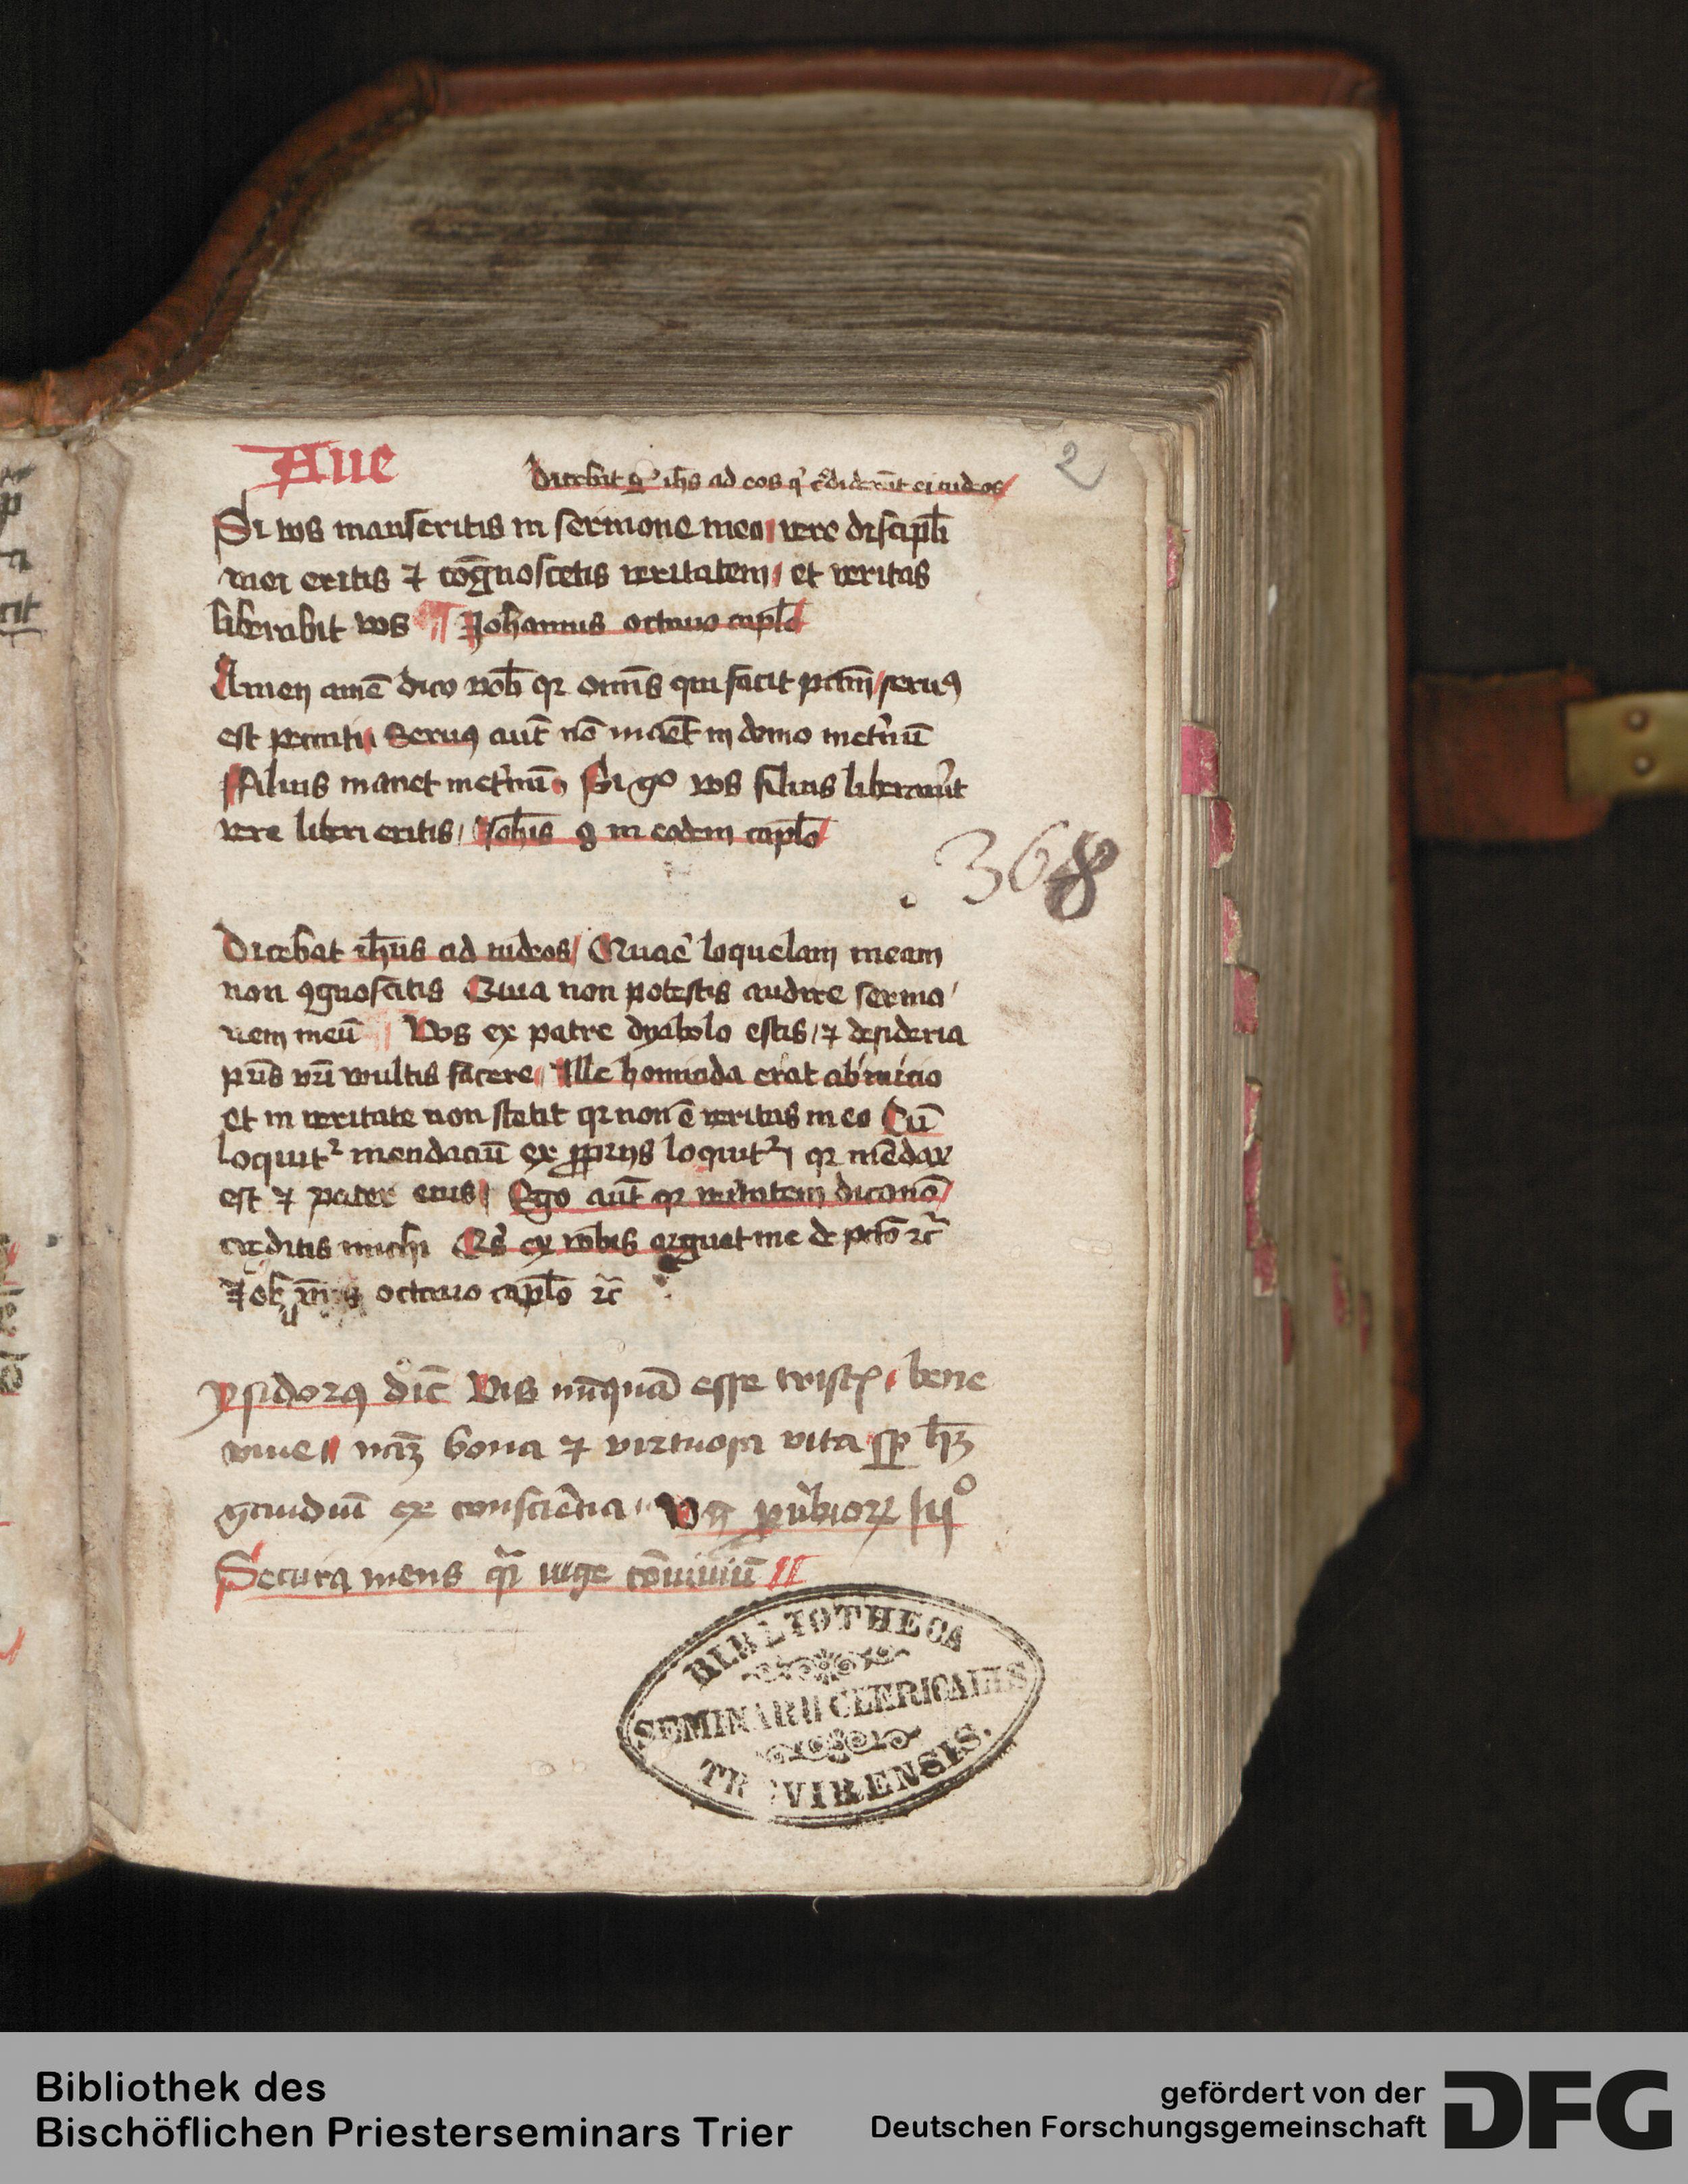 Aue
2
Dicebat gͦ ihs ad eos qͥ crediderūt ei iudeos
Si vos manseritis in sermone meo vere discipl̄i
mei eritis ⁊ cogn̄oscetis veritatem et veritas
liberabit vos Johannis octauo capl̄o
Amen amē dico vob̄ qꝛ omīs qui facit pctm̄ seruꝯ
est peccati Seruꝯ aut̄ nō manet in domo inet̓nū
Filius manet inet̓nū Si gͦ vos filius liberauīt
vere liberi eritis Joh̄is 8 in eodem capl̄o
. 368
Dicebat ih̄us ad iudeos Quare loquelam meam
non ꝯgnoscitis Quia non potestis audire sermo
nem meū Vos ex patre dyabolo estis ⁊ desideria
pr̄is vr̄i vultis facere Ille homicida erat ab inicio
et in veritate non stetit qꝛ non ē veritas in eo Cū
loquit᷑ mendaciū ex ꝓprijs loquit᷑ qꝛ mēdax
est ⁊ pater eius Ego aut̄ qꝛ veritatem dico nō
creditis michi Qͥs ex vobis arguet me de pctō ⁊c̄
Joh octauo capl̄o ⁊c̄
Ysidorꝯ dic̄ Vis nūquā esse tristꝭ bene
viue nāꝫ bona ⁊ virtuosa vita sꝑ hꝫ
gaudiū ex consciēcia Vn̄ ꝓuͥbiorꝝ
Secura mens qͣi iuge cōuiuiū
BIBLIOTHECA
SEMINARII CLERICALIS
TREVIRENSIS.
Bibliothek des
Bischöflichen Priesterseminars Trier
gefördert von der
Deutschen Forschungsgemeinschaft
DFG